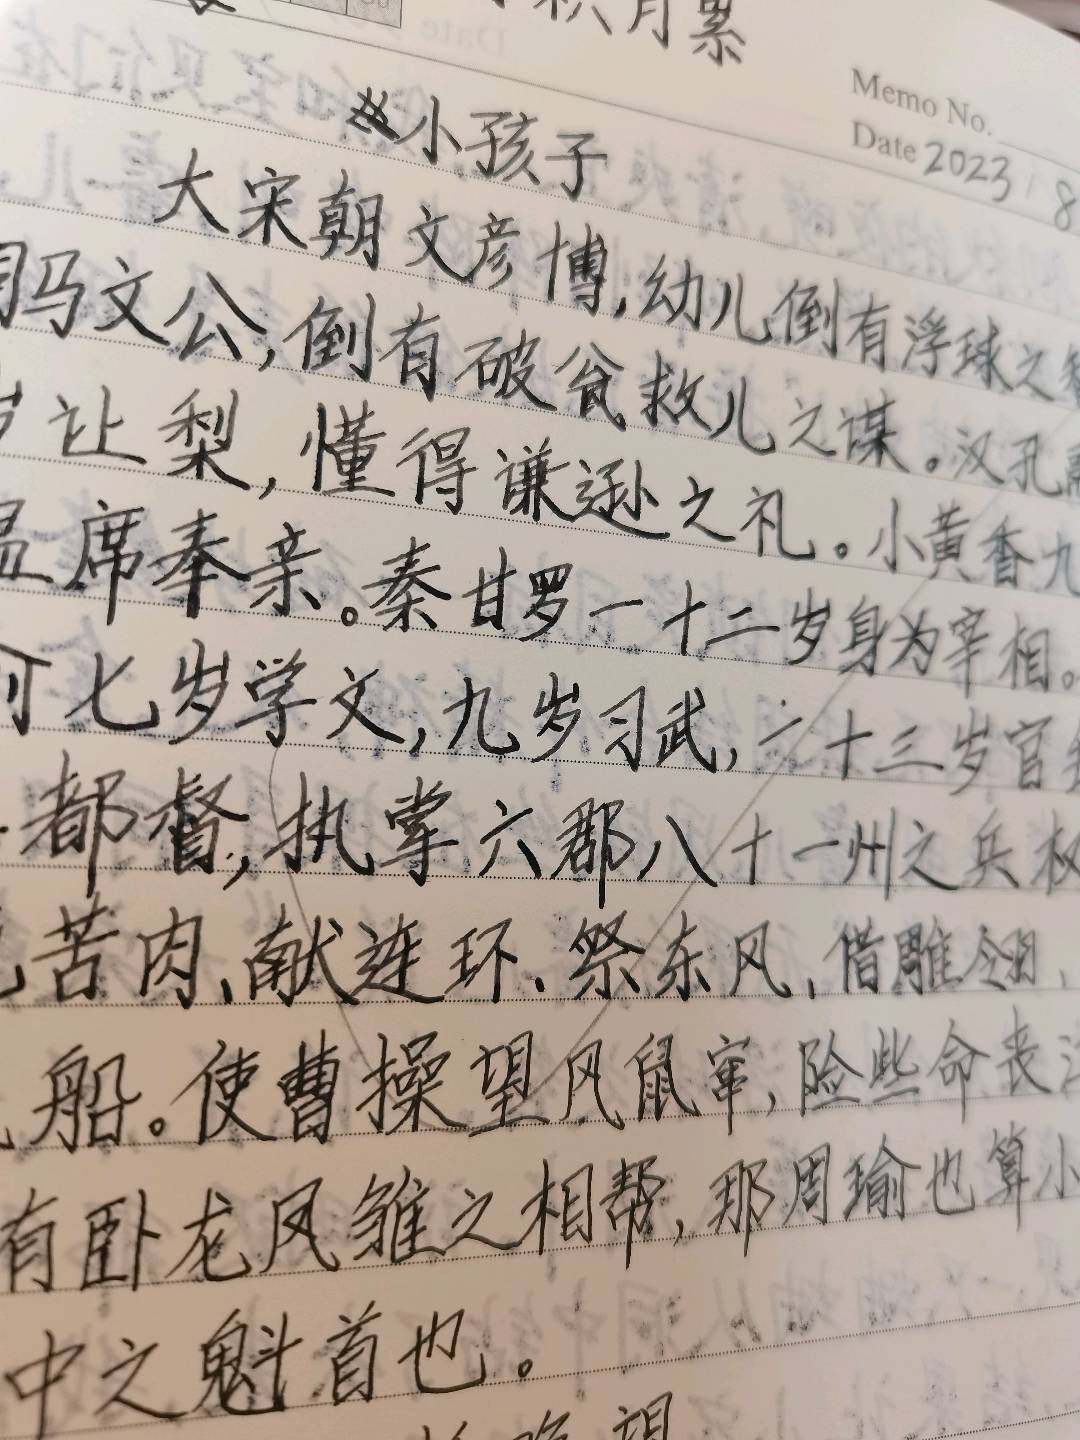 积月累
Memo No.
Date 2023 8
《小孩子
大宋朝文彦博,幼儿倒有浮球之智
司马文公,倒有破瓮救儿之谋。汉孔融
岁让梨,懂得谦逊之礼。小黄香九
温席奉亲。秦甘罗一十二岁身为宰相。
七岁学文,九岁习武,一十三岁官
都督,执掌六郡八十一州之兵权
苦肉、献连环、祭东风、借雕翎、
船。使曹操望风鼠窜,险些命丧
有卧龙凤雏之相帮,那周瑜也算小
中之魁首也。